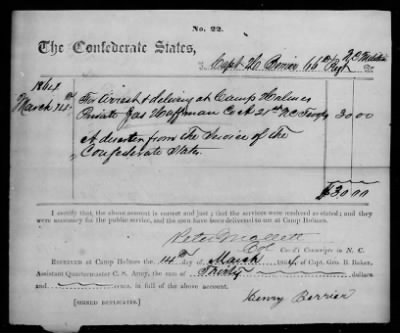 No. 22.
The Confederate States,
To Capt H Berrier 66th Regt N.C. Militia Dr.
1864
March 14th For Arrest & delivery at Camp Holmes
Private Jas Huffman Co A 21st N.C. Troops 30 00
A deserter from the Service of the
Confederate States.
$30.00
I certify, that the above account is correct and just; that the services were rendered as stated; and they
were necessary for the public service, and the men have been delivered to me at Camp Holmes.
Peter Mallett
Col Com'd't Conscripts in N. C.
Received at Camp Holmes the 14th day of March 1864, of Capt. Geo. B. Baker,
Assistant Quartermaster C. S. Army, the sum of Thirty dollars
and cents, in full of the above account.
Henry Berrier
[SIGNED DUPLICATES.]